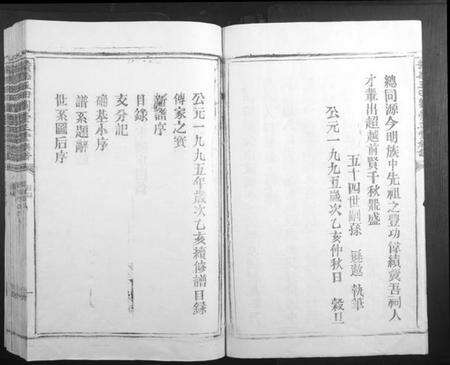 總同源今明族中先祖之豐功偉績實吾祠人
才輩出超越前賢千秋鼎盛
五十四世嗣孫 執筆
公元一九九五歲次乙亥仲秋日 穀旦
公元一九九五年歲次乙亥續修譜目錄
傳家之寶
新譜序
目錄
支分記
序
譜系題辭
世系圖后序